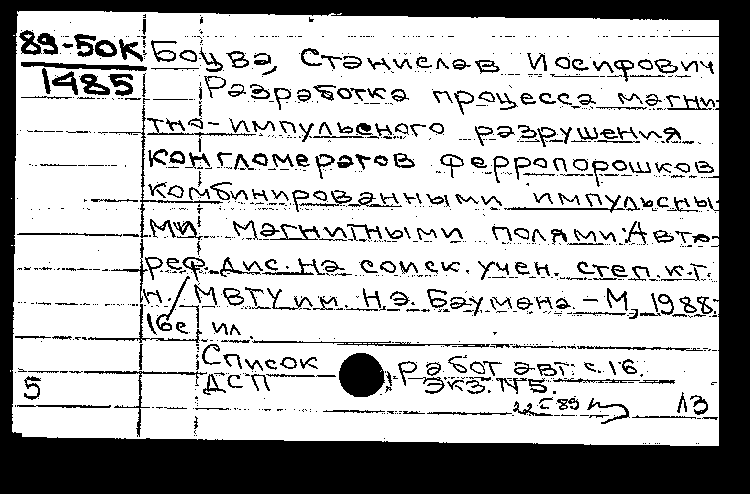 89-50К
1485
Боцва, Станислав Иосифович
Разработка процесса магни-
тно-импульсного разрушения
конгломератов ферропорошков
комбинированными импульсны-
ми магнитными полями: Авто-
реф. дис. на соиск. учен. степ. к.т.
н./ МВТУ им. Н.Э. Баумана – М, 1988.
16с. ил.
Список работ авт: с. 16.
ДСП Экз. N 5.
5
22 89
13